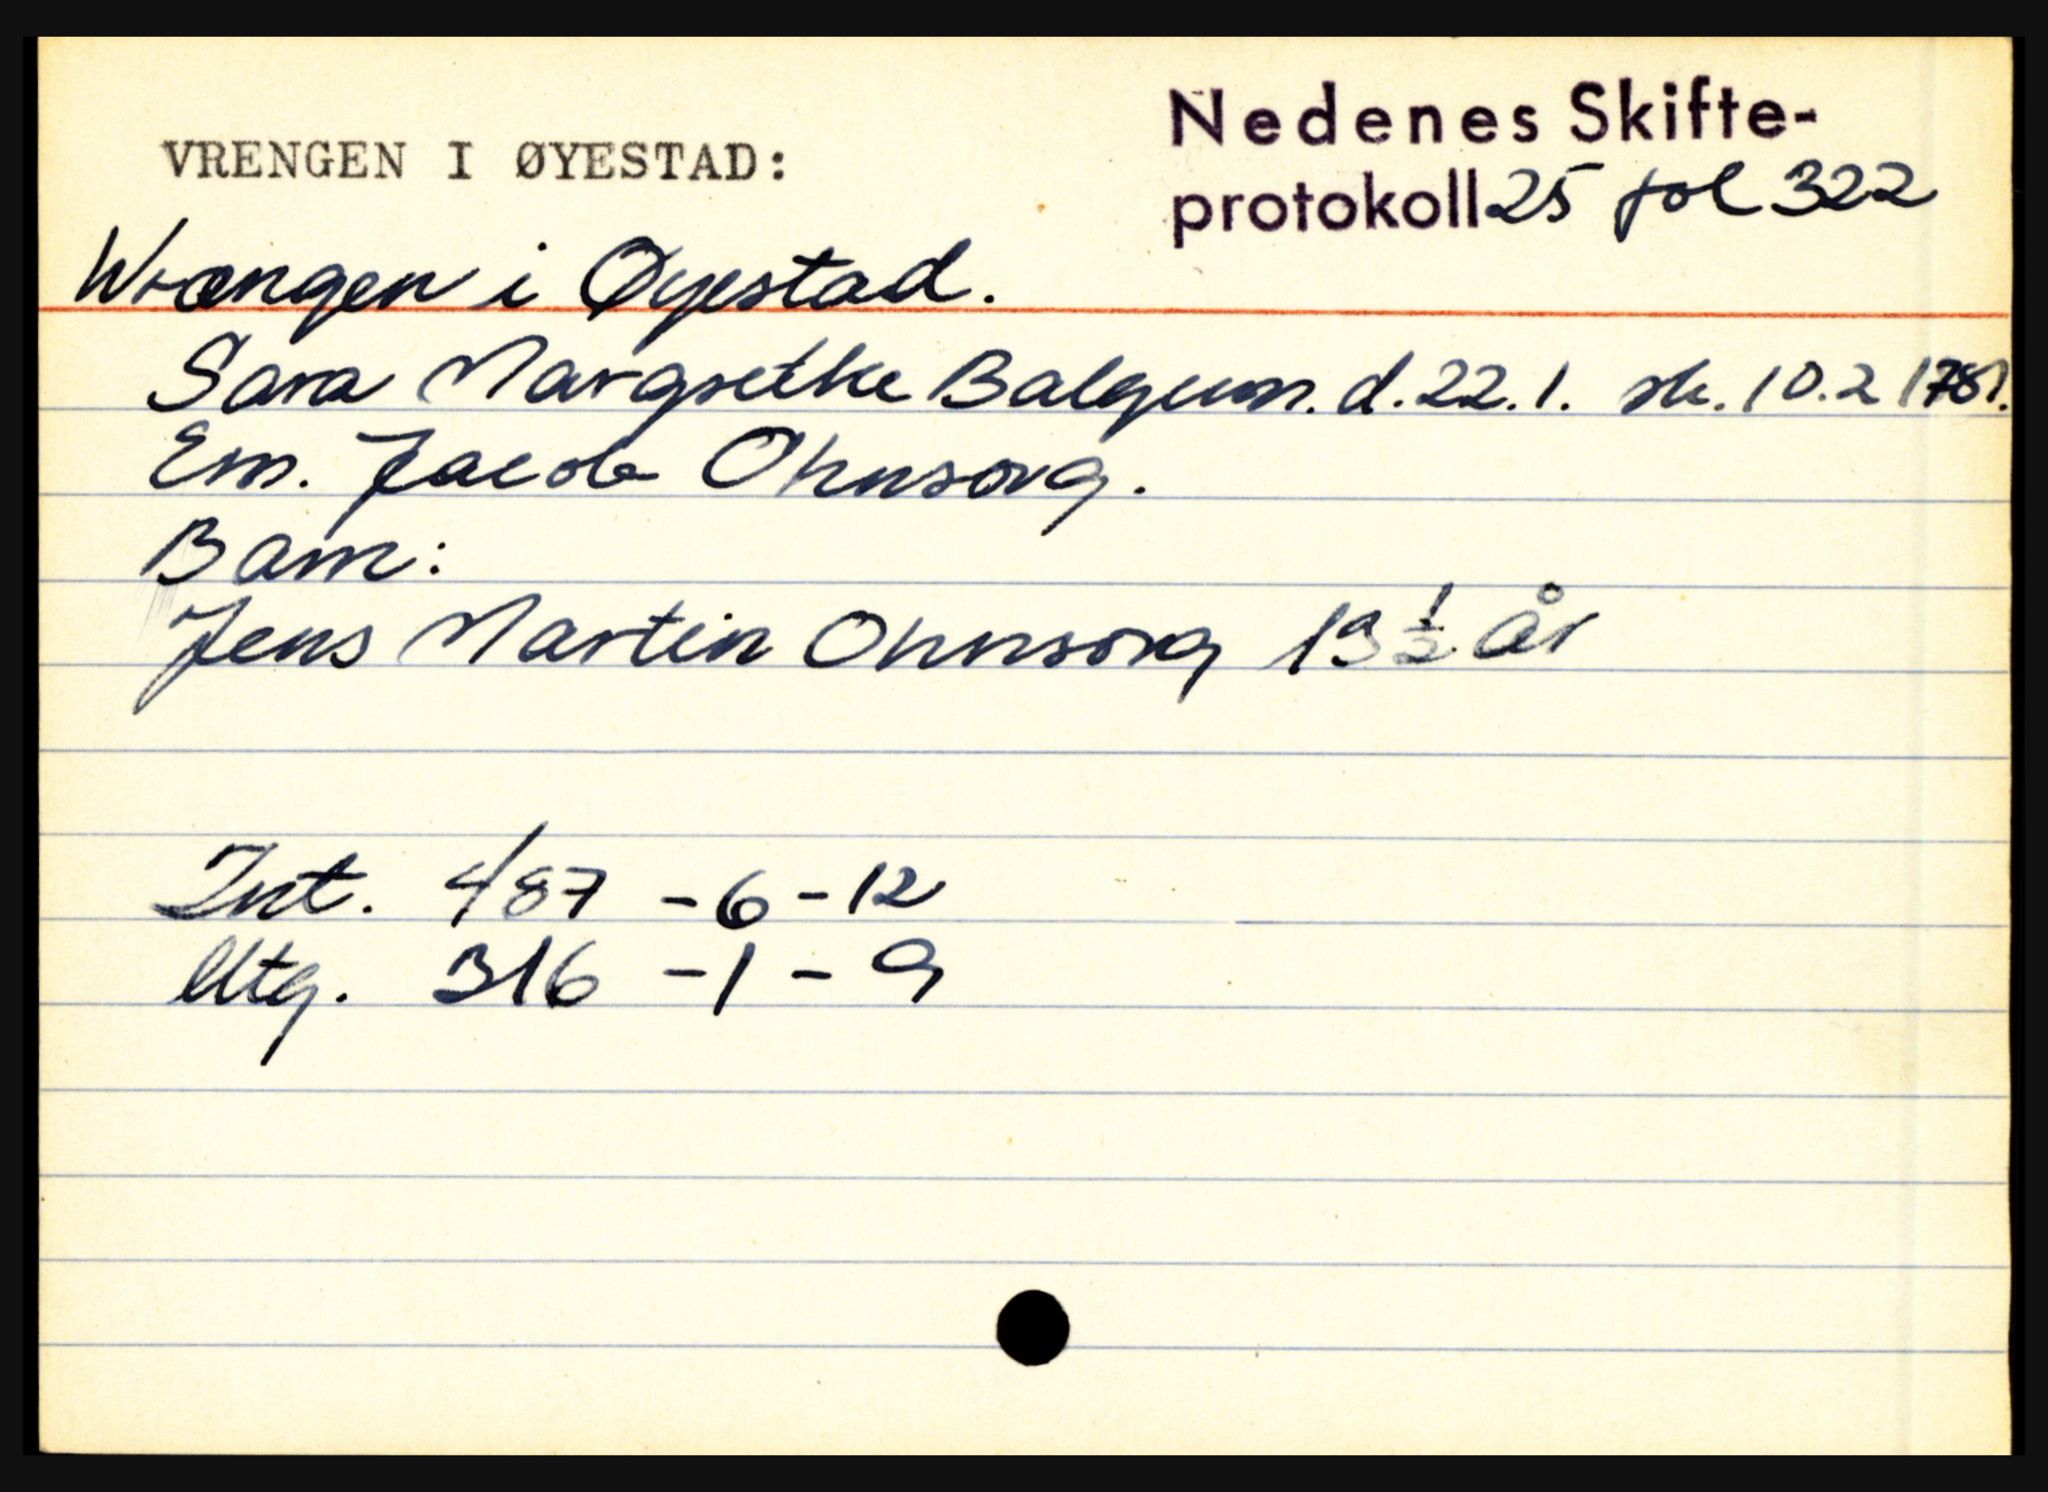 VRENGEN I ØYESTAD:
Nedenes Skifte-
protokoll 25 fol 322
Wrængen i Øyestad.
Sara Margrethe Balgeum. d. 22.1. sk. 10.2 1781.
Em. Jacob Ohnsorg.
Barn:
Jens Martin Ohnsorg 13 ½ år
Int. 487 - 6 - 12
Utg. 316 - 1 - 9